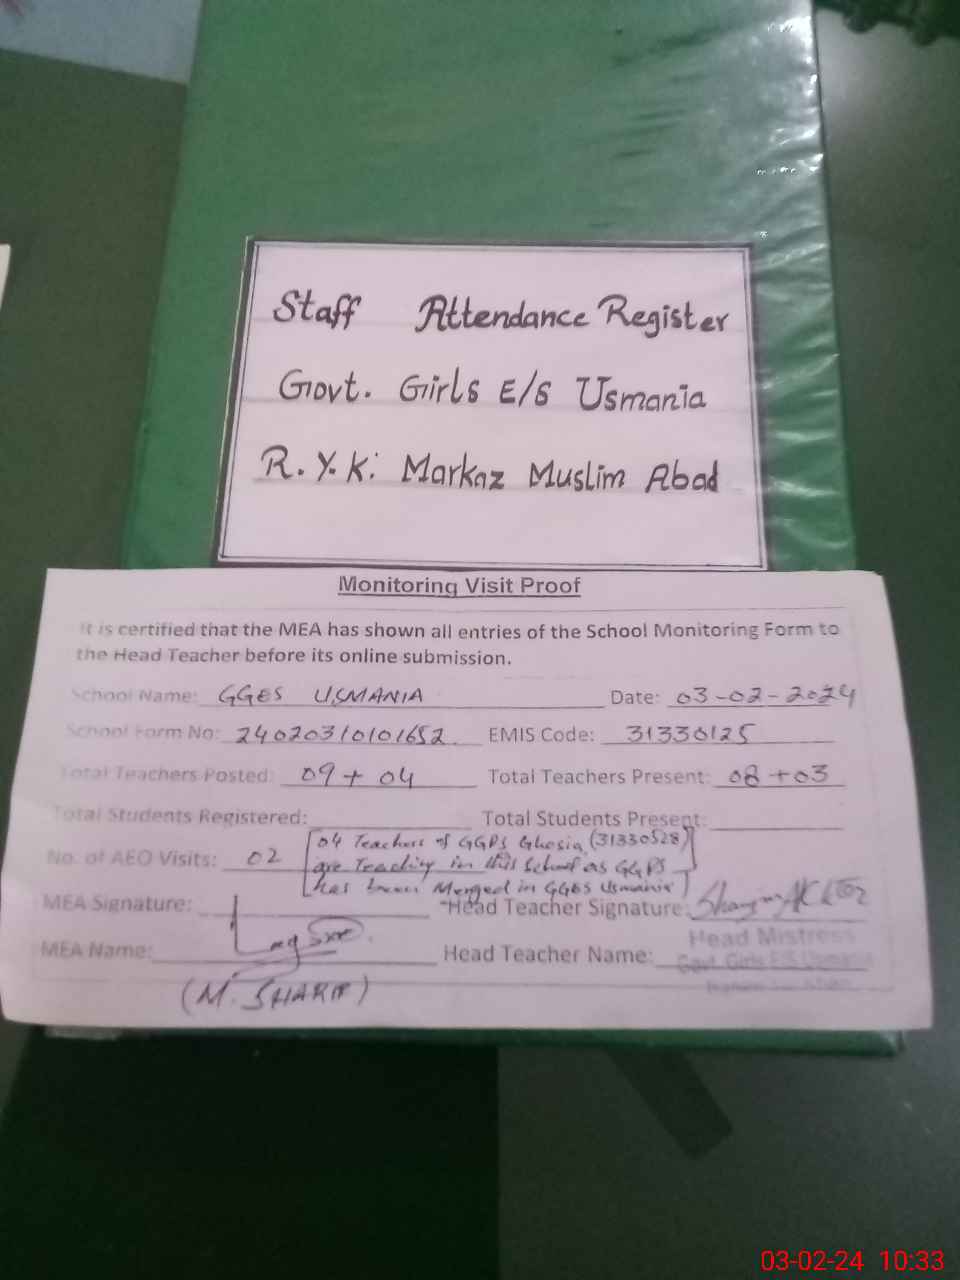 Staff Attendance Register
Govt. Girls E/S Usmania
R.Y.K: Markaz Muslim Abad
Monitoring Visit Proof
It is certified that the MEA has shown all entries of the School Monitoring Form to
the Head Teacher before its online submission.
School Name: GGES USMANIA Date: 03-02-2024
School Form No: 24020310101652 EMIS Code: 31330125
Total Teachers Posted: 09 + 04 Total Teachers Present: 08 + 03
Total Students Registered: Total Students Present:
04 Teachers of GGPS Ghosia (31330528)
No. of AEO Visits: 02 are Teaching in this School as GGPS
has been Merged in GGES Usmania
MEA Signature: Head Teacher Signature:
Head Mistress
MEA Name: Head Teacher Name:
Govt. Girls E/S Usmania
(M. SHARIF)
03-02-24 10:33